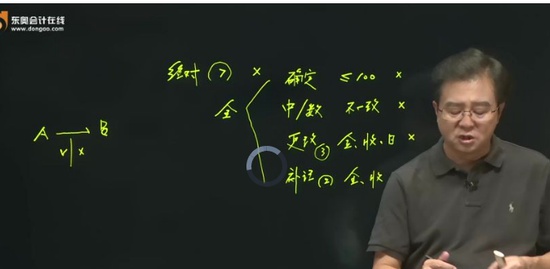 东奥会计在线
www.dongao.com
绝对 ⑦ × 确定 ≤100 ×
金 中/数 不一致 ×
更改③ 金、收、日 ×
A → B
√ | ×
补记② 金、收